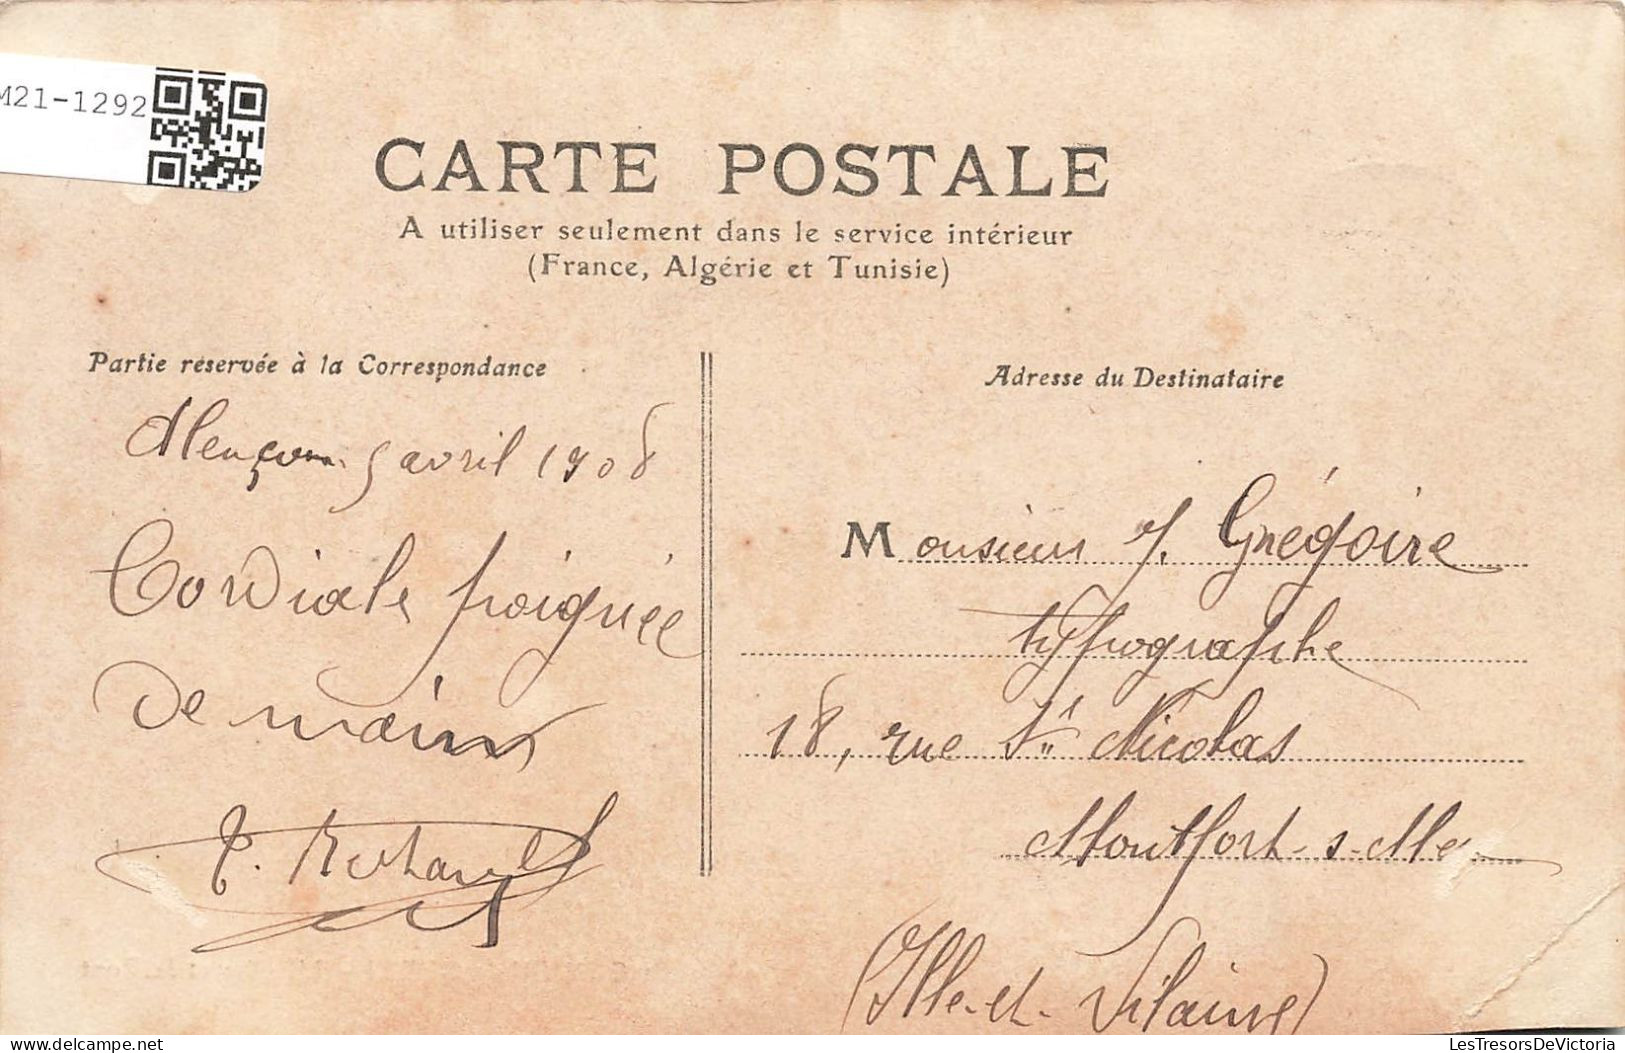 M21-1292
CARTE POSTALE
A utiliser seulement dans le service intérieur
(France, Algérie et Tunisie)
Partie réservée à la Correspondance
Alençon 5 avril 1908
Cordiale poignée
de main
Adresse du Destinataire
Monsieur J. Grégoire
typographe
18, rue St Nicolas
Montfort-s-Me
(Ille-et-Vilaine)
delcampe.net
LesTresorsDeVictoria